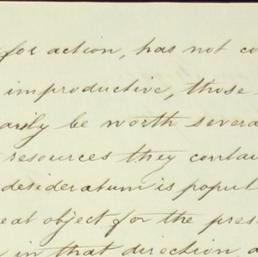 for action, has not co
improductive, those
arily be worth severa
resources they contai
desideratum is popul
eat object for the pres
in that direction a